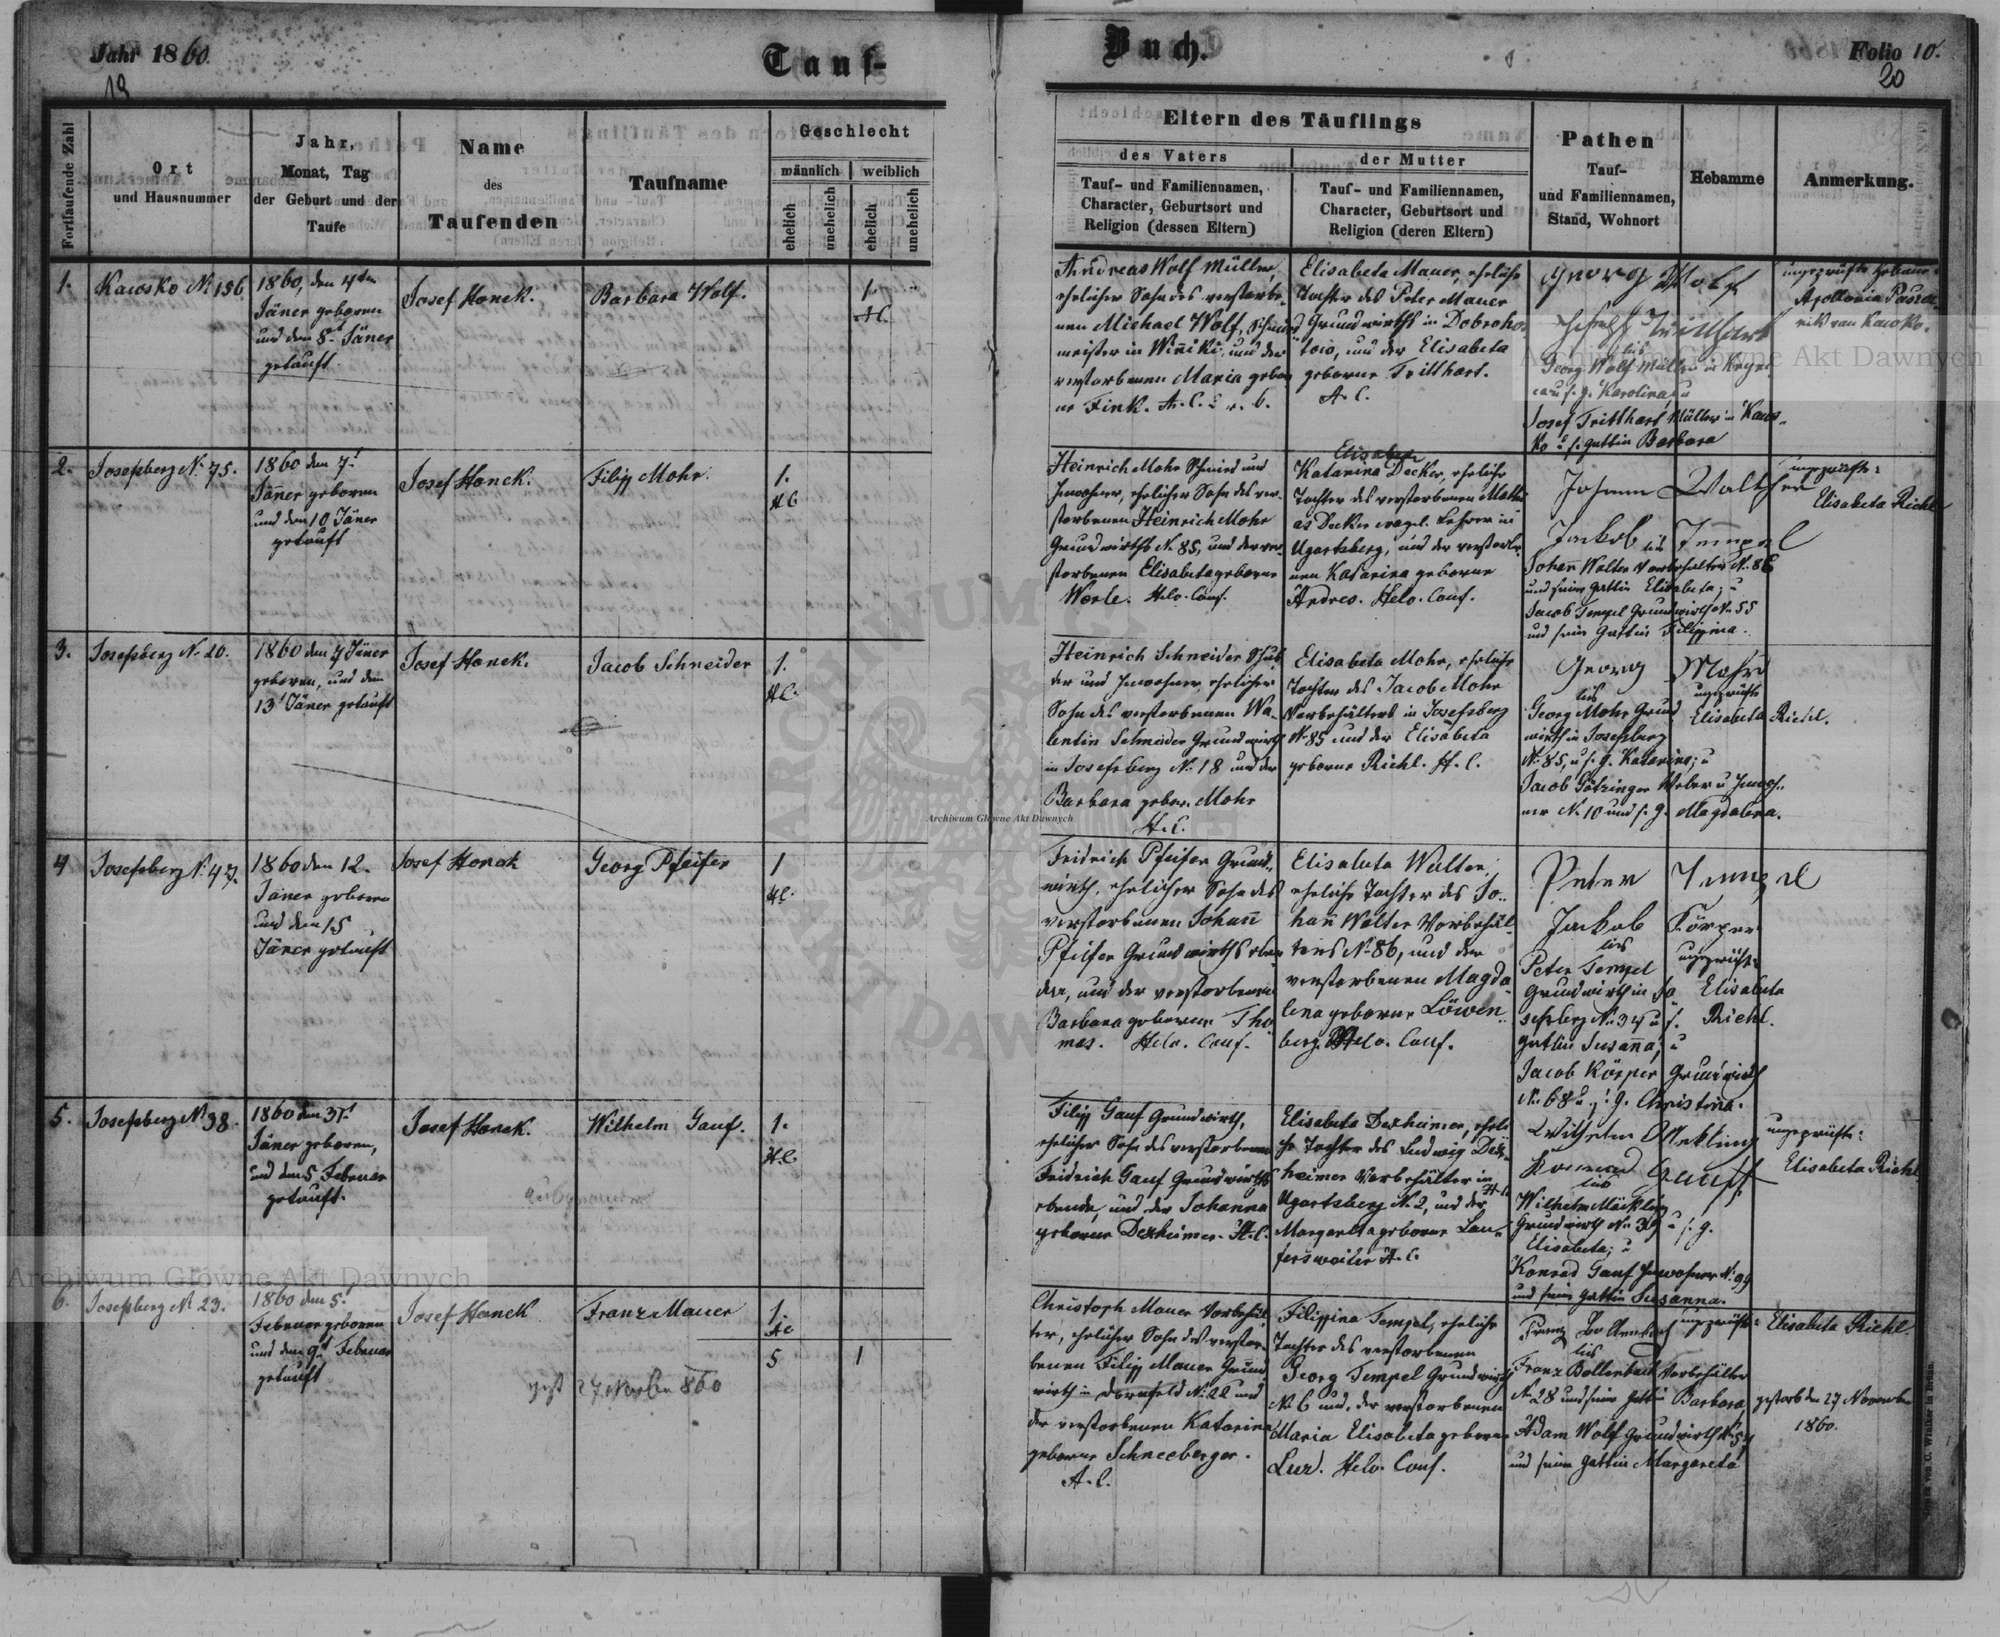 Jahr 1860.
19
Tauf-
Buch.
Folio 10.
20
Fortlaufende Zahl
Ort
und Hausnummer
Jahr,
Monat, Tag
der Geburt und der
Taufe
Name
des
Taufenden
Taufname
Geschlecht
männlich
weiblich
ehelich
unehelich
ehelich
unehelich
Eltern des Täuflings
des Vaters
Tauf- und Familiennamen,
Character, Geburtsort und
Religion (dessen Eltern)
der Mutter
Tauf- und Familiennamen,
Character, Geburtsort und
Religion (deren Eltern)
Pathen
Tauf-
und Familiennamen,
Stand, Wohnort
Hebamme
Anmerkung.
1.
Kawsko N. 156
1860, den 4ten
Jäner geboren
und den 8t Jäner
getauft.
Josef Hanek.
Barbara Wolf.
1.
A.C.
Andreas Wolf Müller,
ehelicher Sohn des verstorbe-
nen Michael Wolf, Schmied
meister in Winiki, und der
verstorbenen Maria gebor
ne Fink. A. C.
Elisabeta Mauer, eheliche
Tochter des Peter Mauer
Grundwirths in Dobroho-
tow, und der Elisabeta
geborne Tritthart.
A. C.
Georg Wolf
Josef Tritthart
Georg Wolf Müller in
u. s. g. Karolina, u
Josef Tritthart Müller in Kaws-
ko u s. gattin Barbara
ungeprüfte Hebamme
Apollonia
von Kawsko.
2.
Josefsberg N. 75.
1860 den 7t
Jäner geboren
und den 10 Jäner
getauft
Josef Hanek.
Filipp Mohr.
1.
HC
Heinrich Mohr Schmied und
Inwohner, ehelicher Sohn des ver-
storbenen Heinrich Mohr
Grundwirths N. 85, und der ver-
storbenen Elisabeta geborne
Werle. Helv. Conf.
Elisabeta
Katarina Decker, eheliche
Tochter des verstorbenen Mathi
as Decker evagel. Lehrer in
Ugartsberg, und der verstorbe-
nen Katarina geborne
Andres. Helv. Conf.
Johann Walther
Jackob Tempel
Johan Walter Vorbehälter N. 86
und seine gattin Elisabeta, u
Jacob Tempel Grundwirth N. 55
und seine Gattin Filippina.
ungeprüfte:
Elisabeta Riehl
3.
Josefsberg N. 20.
1860 den 7 Jäner
geboren, und den
13t Jäner getauft
Josef Hanek.
Jacob Schneider
1.
HC.
Heinrich Schneider
und Inwohner, ehelicher
Sohn des verstorbenen Va-
lentin Schneider Grundwirth
in Josefsberg N. 18 und der
Barbara gebor. Mohr
H. C.
Elisabeta Mohr, eheliche
Tochter des Jacob Mohr
Vorbehälters in Josefsberg
N. 85 und der Elisabeta
geborne Riehl. H. C.
Georg Mohr
Georg Mohr Grund
wirth in Josefsberg
N. 85, u. s. g. Katarina, u
Jacob Götzinger Weber u Inwoh-
ner N. 10 und s. g. Magdalena.
ungeprüfte
Elisabeta Riehl.
4
Josefsberg N. 47.
1860 den 12.
Jäner geboren
und den 15
Jäner getauft
Josef Hanek
Georg Pfeifer
1
HC.
Fridrich Pfeifer Grund-
wirth, ehelicher Sohn des
verstorbenen Johañ
Pfeifer Grundwirths eben
da, und der verstorbenen
Barbara geborne Tho
mas. Helv. Conf.
Elisabeta Walter,
eheliche Tochter des Jo-
hañ Walter Vorbehäl-
ters N. 86, und der
verstorbenen Magda
lena geborne Löwen-
berg. Helv. Conf.
Peter Tempel
Jackob Körper
Peter Tempel
Grundwirth in Jo
sefsberg N. 34 u s.
gattin Susaña, u
Jacob Körper Grundwirth
N. 68 u s. g. Christina.
ungeprüfte
Elisabeta
Riehl.
5.
Josefsberg N. 38.
1860 den 31t
Jäner geboren,
und den 5 Februar
getauft.
Josef Hanek.
Wilhelm Gauf.
1.
H.C.
Filipp Gauf Grundwirth,
ehelicher Sohn des verstorbenen
Fridrich Gauf Grundwirths
ebenda, und der Johanna
geborne Dexheimer. H. C.
Elisabeta Dexheimer, eheli
che Tochter des Ludwig Dex-
heimer Vorbehälter in
Ugartsberg N. 2, und der
Margareta geborne Lau-
fersweiler H. C.
Wilhelm
Konrad Gauff
Wilhelm Mäckling
Grundwirth N. 39 u s. g.
Elisabeta; u
Konrad Gauf Inwohner N. 99
und seine gattin Susanna.
ungeprüfte:
Elisabeta Riehl
6.
Josefsberg N. 23.
1860 den 5.
Februar geboren
und den 9t Februar
getauft
Josef Hanek
Franz Mauer
1.
HC
5
1
gest 27 November 860
Christoph Mauer Vorbehäl
ter, ehelicher Sohn des verstor-
benen Filipp Mauer Grund
wirth in Dornfeld N. 22 und
der verstorbenen Katarina
geborne Schneeberger.
A. C.
Filippina Tempel, eheliche
Tochter des verstorbenen
Georg Tempel Grundwirth
N. 6 und der verstorbenen
Maria Elisabeta geborne
Helv. Conf.
Franz Bollenbach
Franz Bollenbach Vorbehälter
N. 28 und seine gattin Barbara
Adam Wolf Grundwirth N. 54
und seine gattin Margareta
ungeprüfte: Elisabeta Riehl.
gestorb den 27 November
1860.
Archiwum Główne Akt Dawnych
Archiwum Główne Akt Dawnych
Archiwum Główne Akt Dawnych